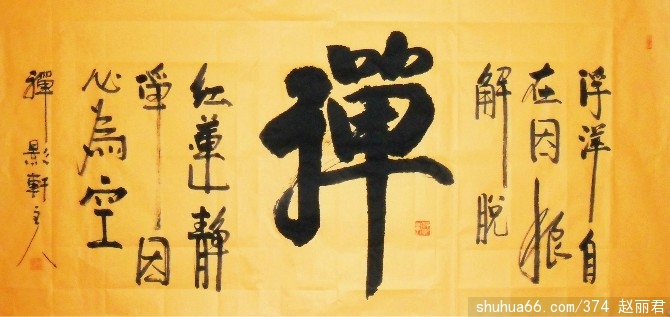 浮洋自
在因根
解脱
禪
红蓮静
淨因
心為空
禪影軒主人
shuhua66.com/374 赵丽君